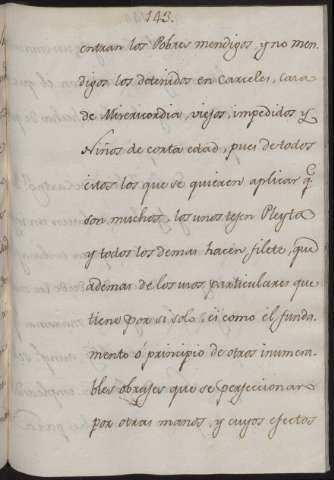 143.
entran los Pobres mendigos, y no men-
digos los detenidos en Carceles, Casa
de Misericordia, viejos, impedidos y
Niños de corta edad, pues de todos
estos los que se quieren aplicar q.e
son muchos, los unos tejen Pleyta
y todos los demas hacen filete, que
ademas de los usos particulares que
tiene por si solo, es como el funda-
mento ó principio de otros inumera-
bles obrajes que se perfeccionan
por otras manos, y cuyos efectos